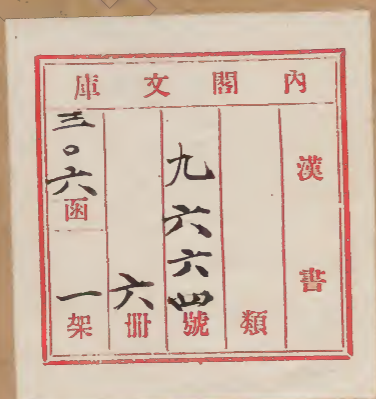 內閣文庫
漢書
類
九六六四號
六冊
三〇六函
一架